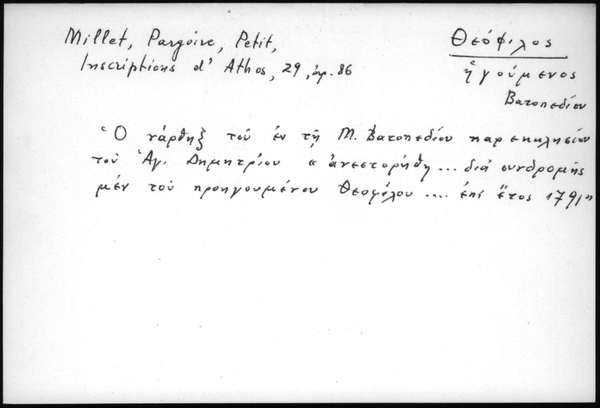 Millet, Pargoire, Petit,
Inscriptions d' Athos, 29, ἀρ. 86
Θεόφιλος
ἡγούμενος
Βατοπεδίου
Ὁ νάρθηξ τοῦ ἐν τῇ Μ. Βατοπεδίου παρεκκλησίου
τοῦ Ἁγ. Δημητρίου « ἀνεστορήθη ... διά συνδρομῆς
μέν τοῦ προηγουμένου Θεοφίλου .... ἐπί ἔτος 1791"